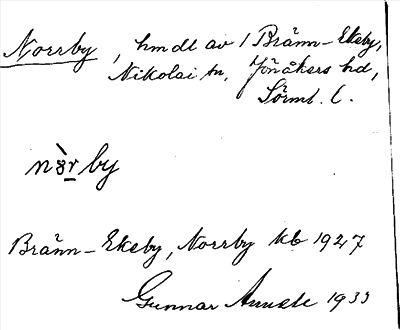 Norrby, hmdl av 1 Bränn-Ekeby,
Nikolai sn, Jönåkers hd,
Sörml. l.
nòr̲by
Bränn-Ekeby, Norrby kb 1927
Gunnar 1933